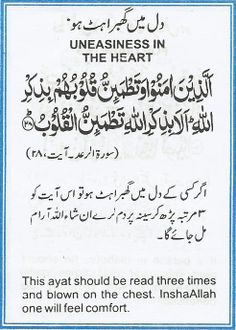 دل میں گھبراہٹ ہو:
UNEASINESS IN
THE HEART
اَلَّذِیْنَ اٰمَنُوْا وَتَطْمَىِٕنُّ قُلُوْبُهُمْ بِذِكْرِ
اللّٰهِ ؕ اَلَا بِذِكْرِ اللّٰهِ تَطْمَىِٕنُّ الْقُلُوْبُ ۲۸
(سورۃ الرعد۔ آیت، ۲۸)
اگر کسی کے دل میں گھبراہٹ ہو تو اس آیت کو
۳ مرتبہ پڑھ کر سینہ پر دم کرے ان شاء اللہ آرام
مل جائے گا۔
This ayat should be read three times
and blown on the chest. InshaAllah
one will feel comfort.